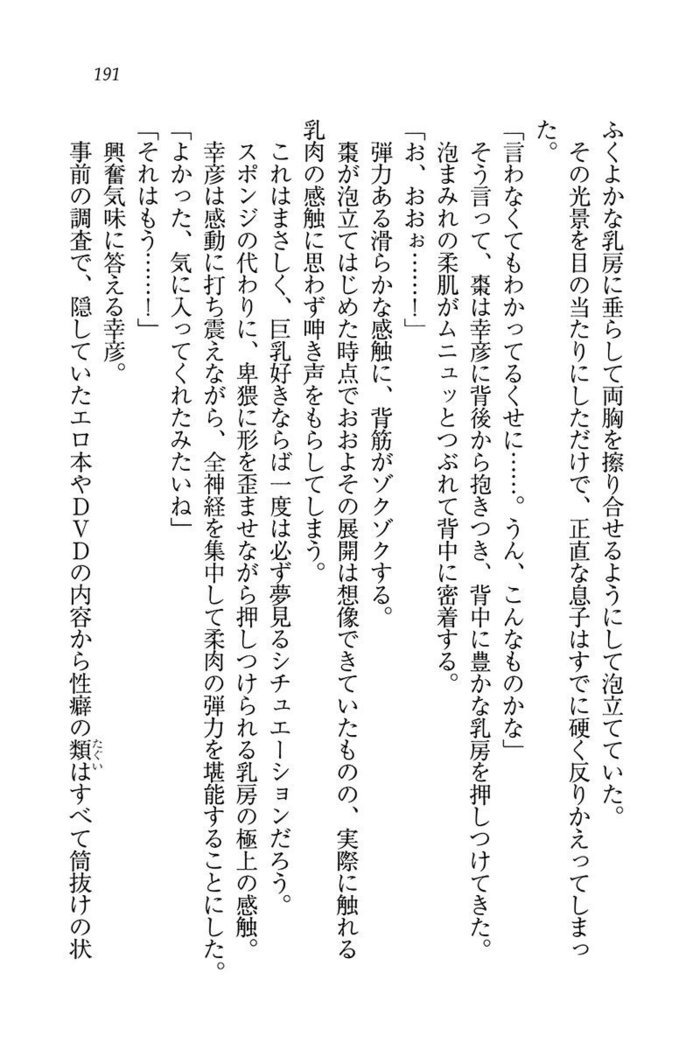 191
ふくよかな乳房に垂らして両胸を擦り合せるようにして泡立てていた。
その光景を目の当たりにしただけで、正直な息子はすでに硬く反りかえってしまっ
た。
「言わなくてもわかってるくせに……。うん、こんなものかな」
そう言って、棗は幸彦に背後から抱きつき、背中に豊かな乳房を押しつけてきた。
泡まみれの柔肌がムニュッとつぶれて背中に密着する。
「お、おおぉ……！」
弾力ある滑らかな感触に、背筋がゾクゾクする。
棗が泡立てはじめた時点でおおよその展開は想像できていたものの、実際に触れる
乳肉の感触に思わず呻き声をもらしてしまう。
これはまさしく、巨乳好きならば一度は必ず夢見るシチュエーションだろう。
スポンジの代わりに、卑猥に形を歪ませながら押しつけられる乳房の極上の感触。
幸彦は感動に打ち震えながら、全神経を集中して柔肉の弾力を堪能することにした。
「よかった、気に入ってくれたみたいね」
「それはもう……！」
興奮気味に答える幸彦。
事前の調査で、隠していたエロ本やＤＶＤの内容から性癖の類はすべて筒抜けの状
たぐい